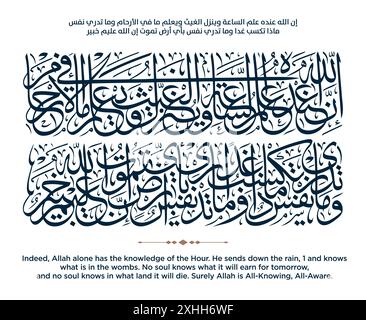 إن الله عنده علم الساعة وينزل الغيث ويعلم ما في الأرحام وما تدري نفس
ماذا تكسب غدا وما تدري نفس بأي أرض تموت إن الله عليم خبير
إن الله عنده علم الساعة وينزل الغيث ويعلم ما في الأرحام
وما تدري نفس ماذا تكسب غدا وما تدري نفس بأي أرض تموت إن الله عليم خبير
Indeed, Allah alone has the knowledge of the Hour. He sends down the rain, 1 and knows
what is in the wombs. No soul knows what it will earn for tomorrow,
and no soul knows in what land it will die. Surely Allah is All-Knowing, All-Aware.
alamy
Image ID: 2XHH6WF
www.alamy.com